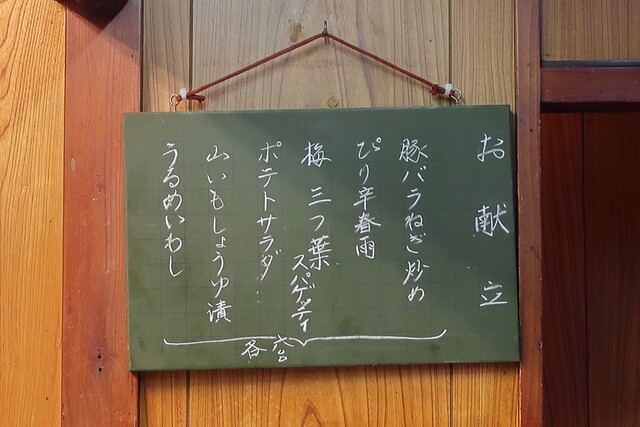 お献立
豚バラねぎ炒め
ぴり辛春雨
梅 三つ葉スパゲッティ
ポテトサラダ
山いもしょうゆ漬
うるめいわし
各六〇〇